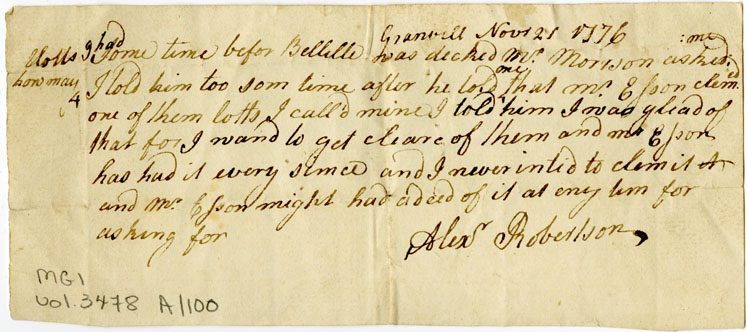 Granvill Novr 21 1776
Some time befor Bellille was decked Mr. Morison asked :me
lotts I had
how may I told him too som time after he told me that mr. Esson clemd
4 one of them lotts I call'd mine I told him I was glead of
that for I wand to get cleare of them and mr Esson
has had it every sence and I never intid to clem it
and Mr. Esson might had a deed of it at eny tim for
asking for
Alexr Robertson
MG1
vol. 3478 A/100